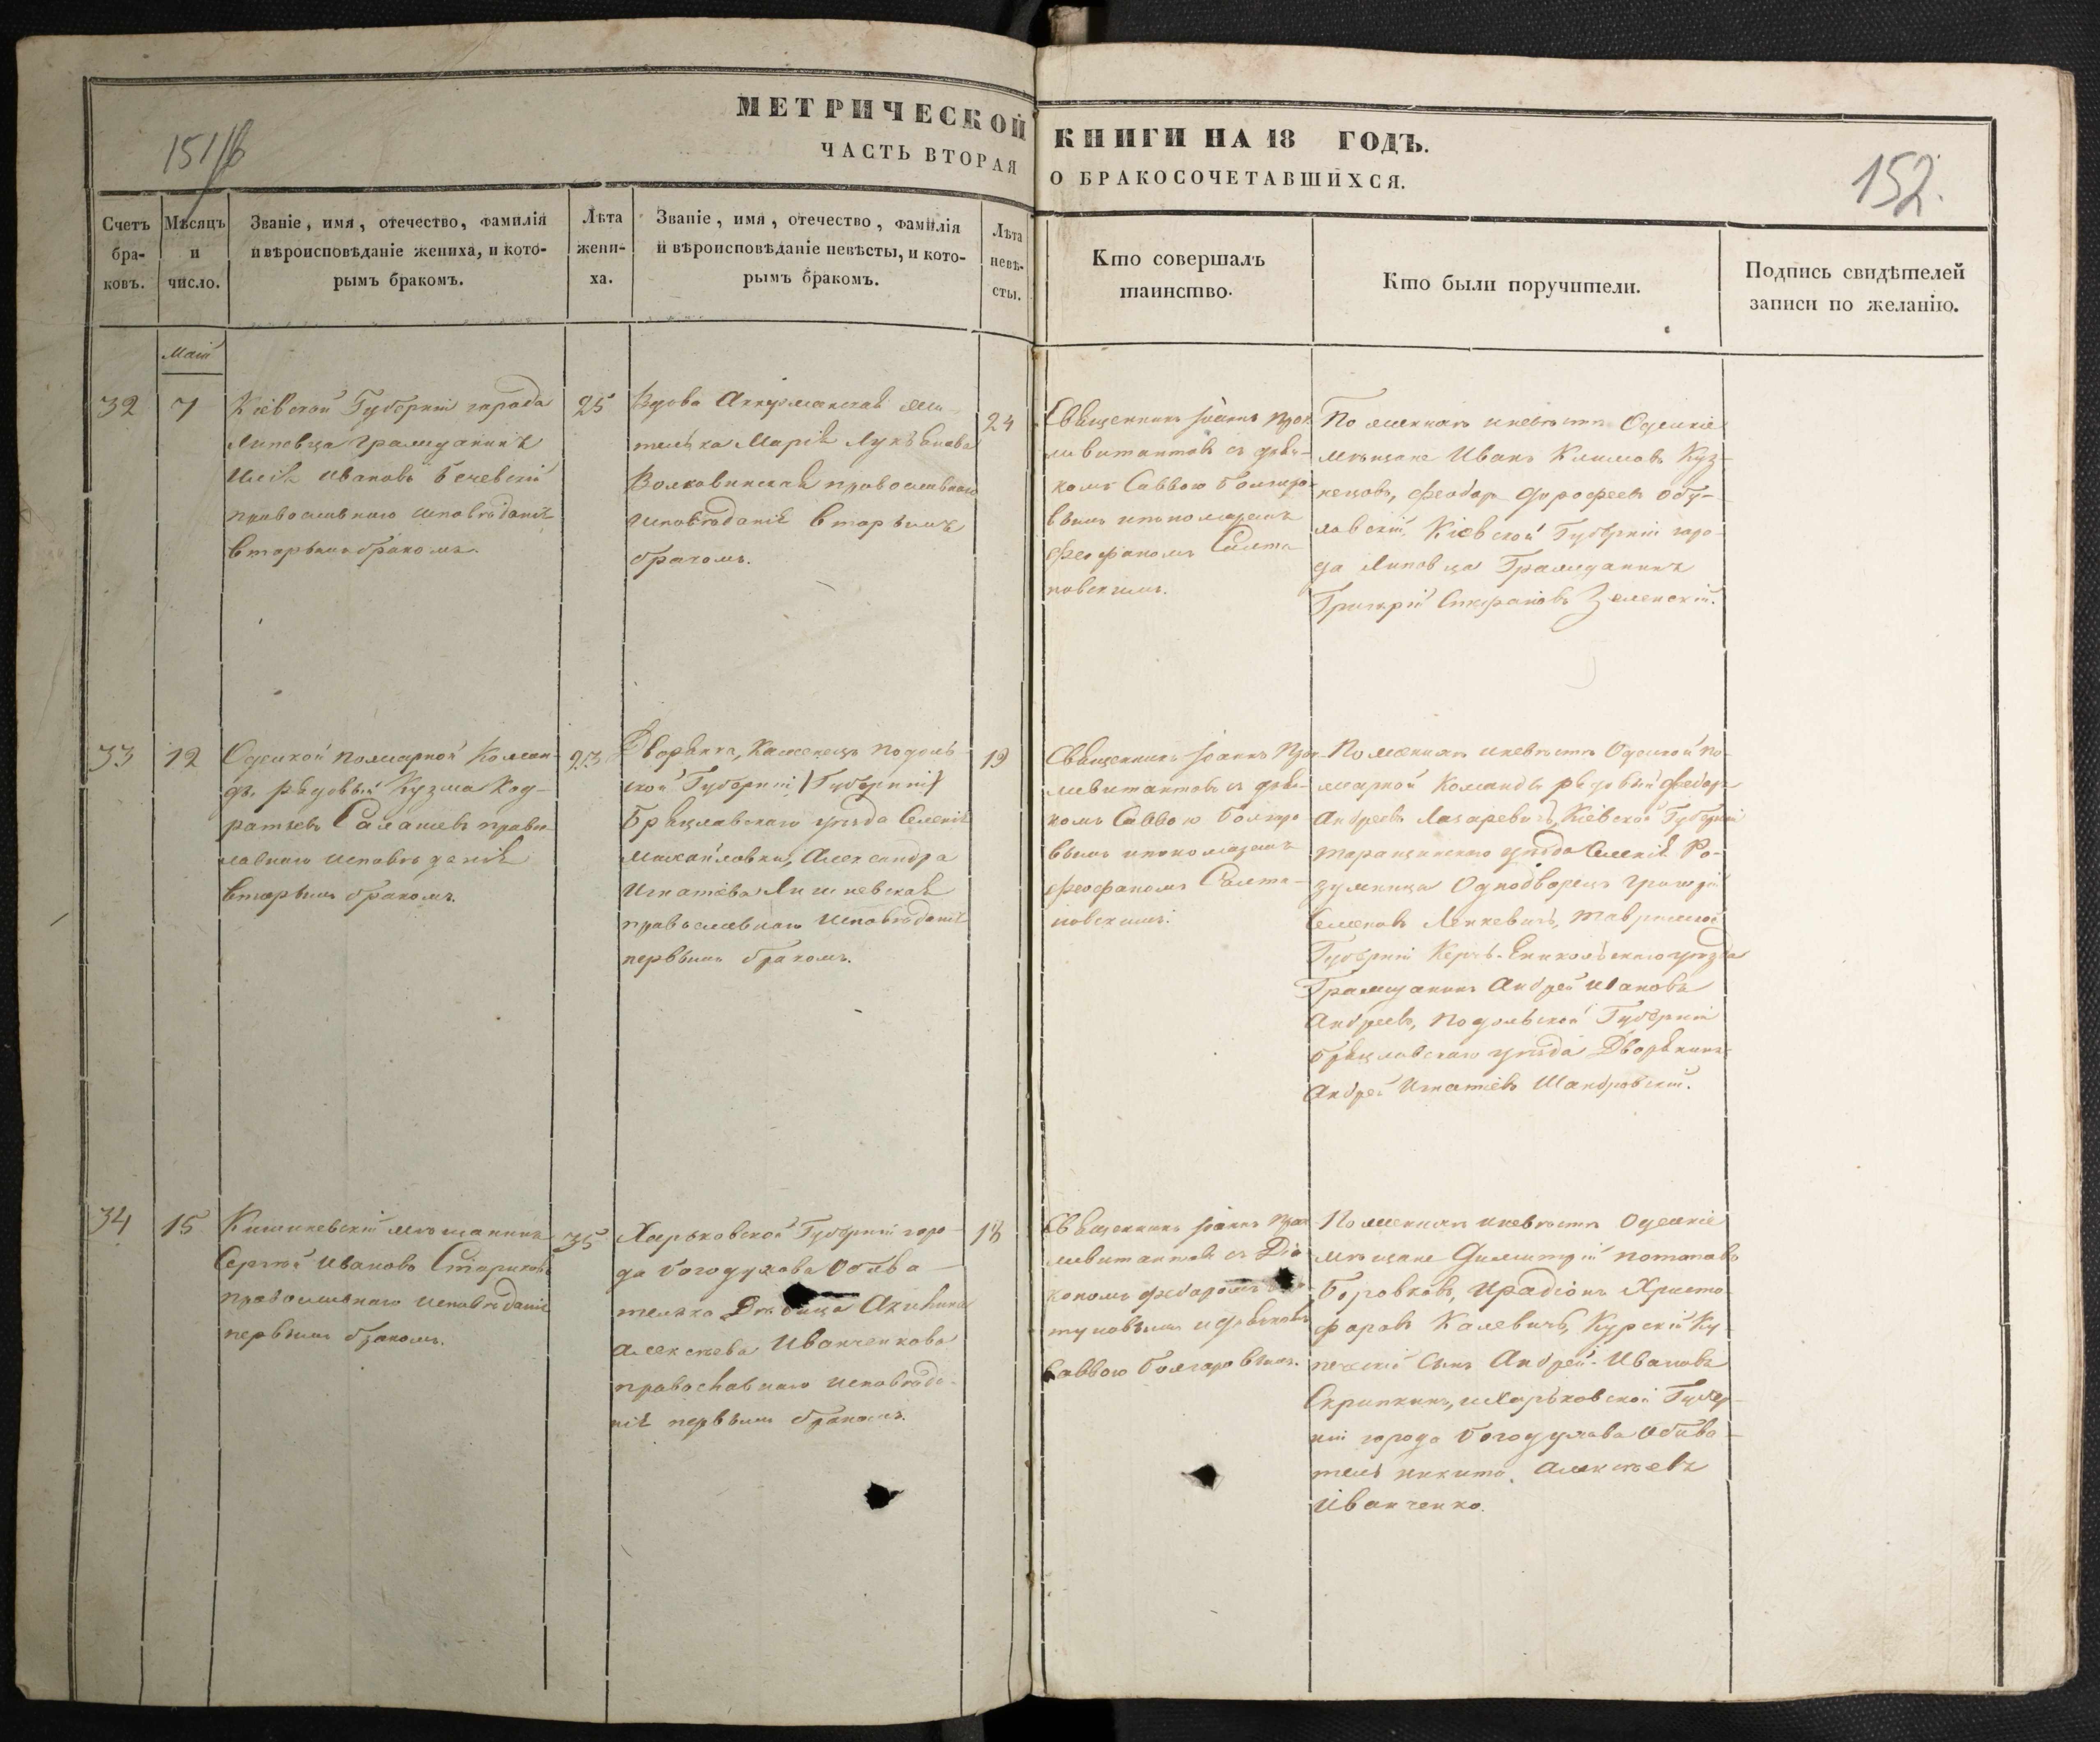 МЕТРИЧЕСКОЙ КНИГИ НА 18 ГОДЪ.
ЧАСТЬ ВТОРАЯ О БРАКОСОЧЕТАВШИХСЯ.
151/б
152.
Счетъ
бра-
ковъ.
Мѣсяцъ
и
число.
Званіе, имя, отечество, фамилія
и вѣроисповѣданіе жениха, и кото-
рымъ бракомъ.
Лѣта
жени-
ха.
Званіе, имя, отечество, фамилія
и вѣроисповѣданіе невѣсты, и кото-
рымъ бракомъ.
Лѣта
невѣ-
сты.
Кто совершалъ
таинство.
Кто были поручители.
Подпись свидѣтелей
записи по желанію.
Маій
32
7
Кіевской Губерніи города
Липовца Гражданинъ
Илія Ивановъ
православнаго исповѣданія
вторымъ бракомъ.
25
Вдова Аккерманская жи-
телька Марія
Волковинская православнаго
исповѣданія вторымъ
бракомъ.
24
Священникъ Іоаннъ
съ дьяч-
комъ Саввою Болгаро-
вымъ и пономаремъ
Феофаномъ Салта-
новскимъ.
По женихѣ и невѣстѣ Одескіе
мѣщане Иванъ Климовъ Куз-
нецовъ, Феодоръ Дорофеевъ Обу-
ловскій, Кіевской Губерніи горо-
да Липовца Гражданинъ
Григорій Стефановъ Зеленскій.
33
12
Одеской пожарной Коман-
ды рядовый Кузма Код-
ратьевъ Салашевъ право-
славнаго исповѣданія
вторымъ бракомъ.
23
Дворянка, Каменецъ Подоль-
ской Губерніи (Губерніи)
Брацлавскаго уѣзда Селенія
Михайловки, Александра
Игнатіева
православнаго исповѣданія
первымъ бракомъ.
19
Священникъ Іоаннъ
съ дьяч-
комъ Саввою Болгаро
вымъ и пономаремъ
Феофаномъ Салта-
новскимъ.
По женихѣ и невѣстѣ Одеской по-
жарной Команды рядовый Феодоръ
Андреевъ Лазаревичъ, Кіевской Губерніи
Таращинскаго уѣзда Селенія Ро-
зумница Однодворецъ Григорій
Семеновъ Ленкевичъ, Таврической
Губерніи Керчь-Еникольскаго уѣзда
Гражданинъ Андрей Ивановъ
Андреевъ, Подольской Губерніи
Брацлавскаго уѣзда Дворянинъ
Андрей Игнатіевъ Шандровскій.
34
15
Кишиневскій мѣщанинъ
Сергѣй Ивановъ Стариковъ
православнаго исповѣданія
первымъ бракомъ.
35
Харьковской Губерніи горо-
да Богодухова Обыва-
телька Дѣвица Акилина
Алексѣева Иванченкова
православнаго исповѣда-
нія первымъ бракомъ.
18
Священникъ Іоаннъ
съ Діа
кономъ Феодоромъ
и дьячкомъ
Саввою Болгаровымъ.
По женихѣ и невѣстѣ Одескіе
мѣщане Димитрій Потаповъ
Боровковъ, Иродіонъ Христо
форовъ Калевичъ, Курскій Ку
печескій Сынъ Андрей Ивановъ
Скрипкинъ, и Харьковской Губер-
ніи города Богодухова Обыва-
тель Никита Алексѣевъ
Иванченко.